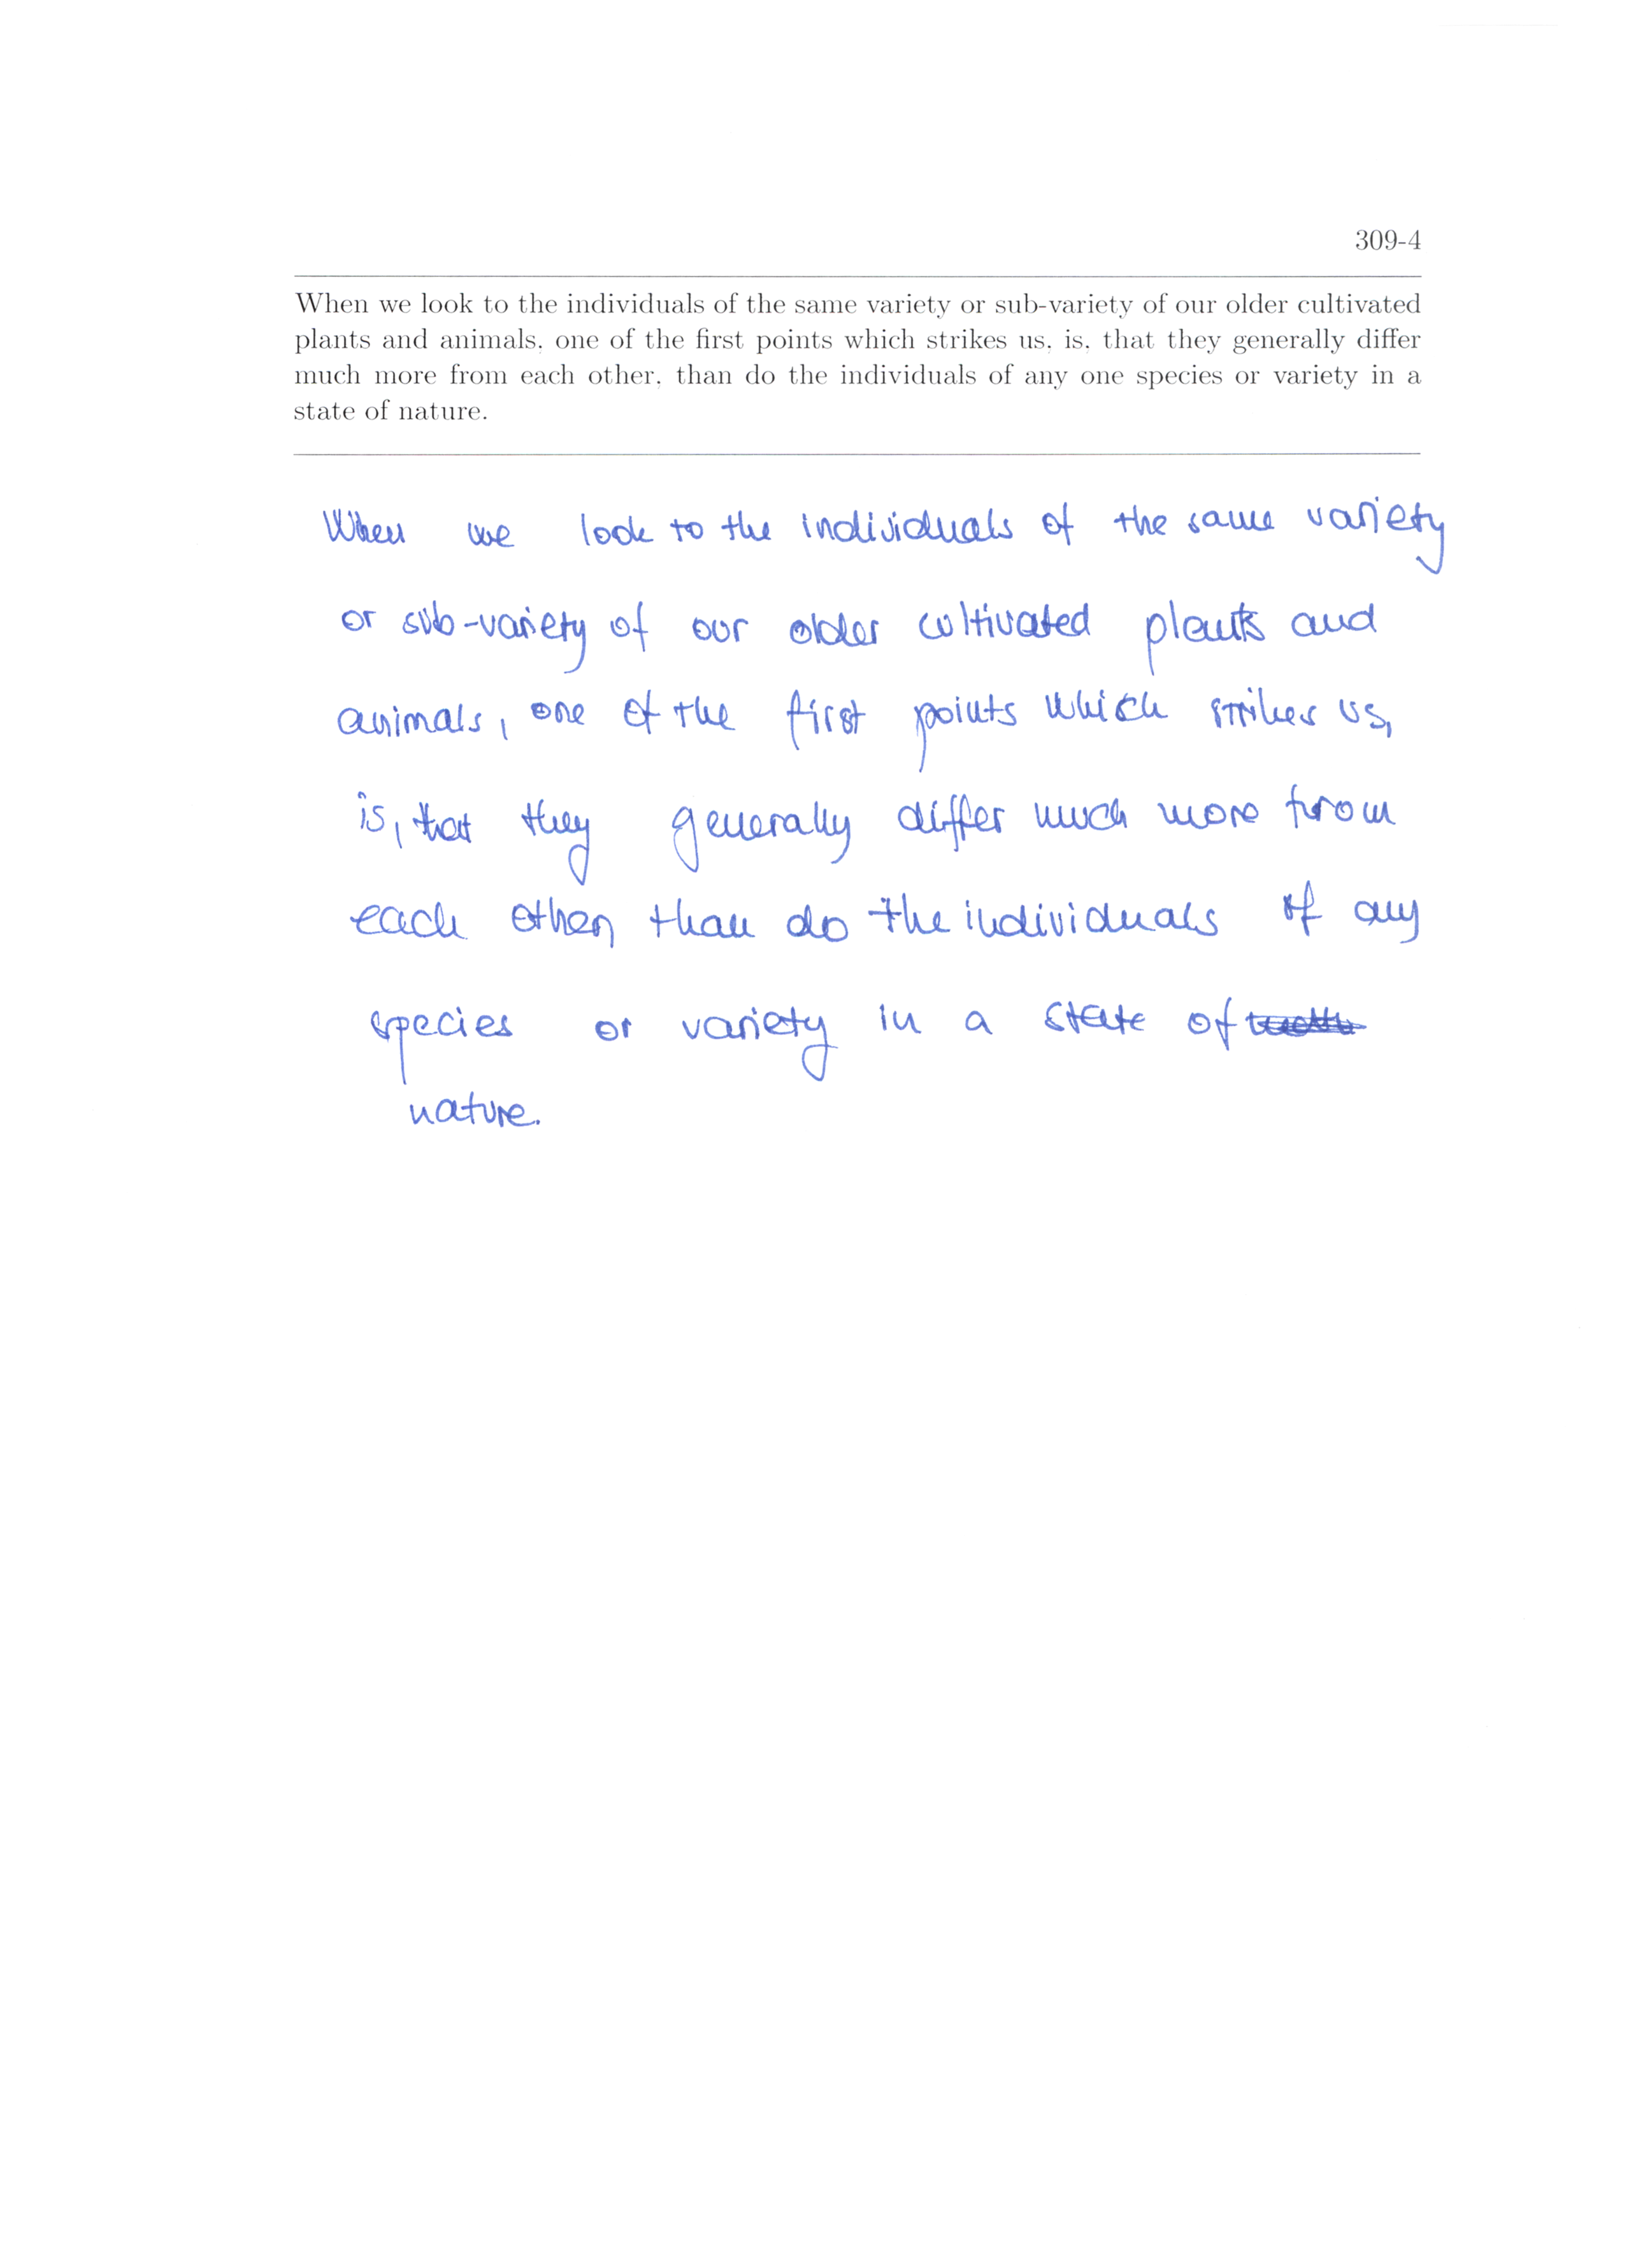 309-4
When we look to the individuals of the same variety or sub-variety of our older cultivated
plants and animals, one of the first points which strikes us, is, that they generally differ
much more from each other, than do the individuals of any one species or variety in a
state of nature.
When we look to the individuals of the same variety
or sub-variety of our older cultivated plants and
animals, one of the first points which strikes us,
is, that they generally differ much more from
each other, than do the individuals of any
species or variety in a state of
nature.